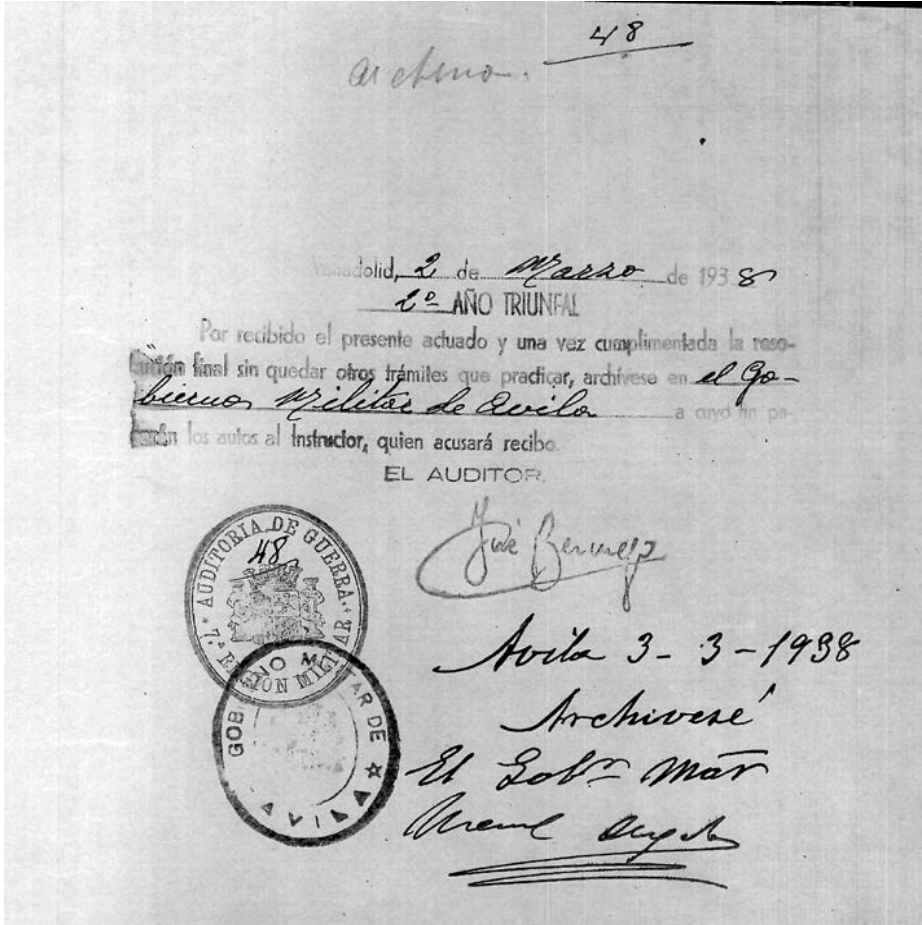 48
archivo.
Valladolid, 2 de Marzo de 1938
2º AÑO TRIUNFAL
Por recibido el presente actuado y una vez cumplimentada la reso-
lución final sin quedar otros trámites que practicar, archívese en el Go-
bierno Militar de Avila a cuyo fin pa-
sarán los autos al Instructor, quien acusará recibo.
EL AUDITOR,
José Bermejo
7.ª AUDITORIA DE GUERRA. REGION MILITAR
48
Avila 3-3-1938
Archivesé
GOBIERNO MILITAR DE AVILA
El Gobr Mar